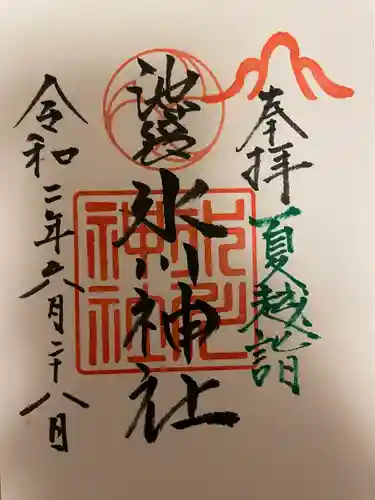 奉拝
夏越詣
池袋氷川神社
氷川神社
令和二年六月二十八日